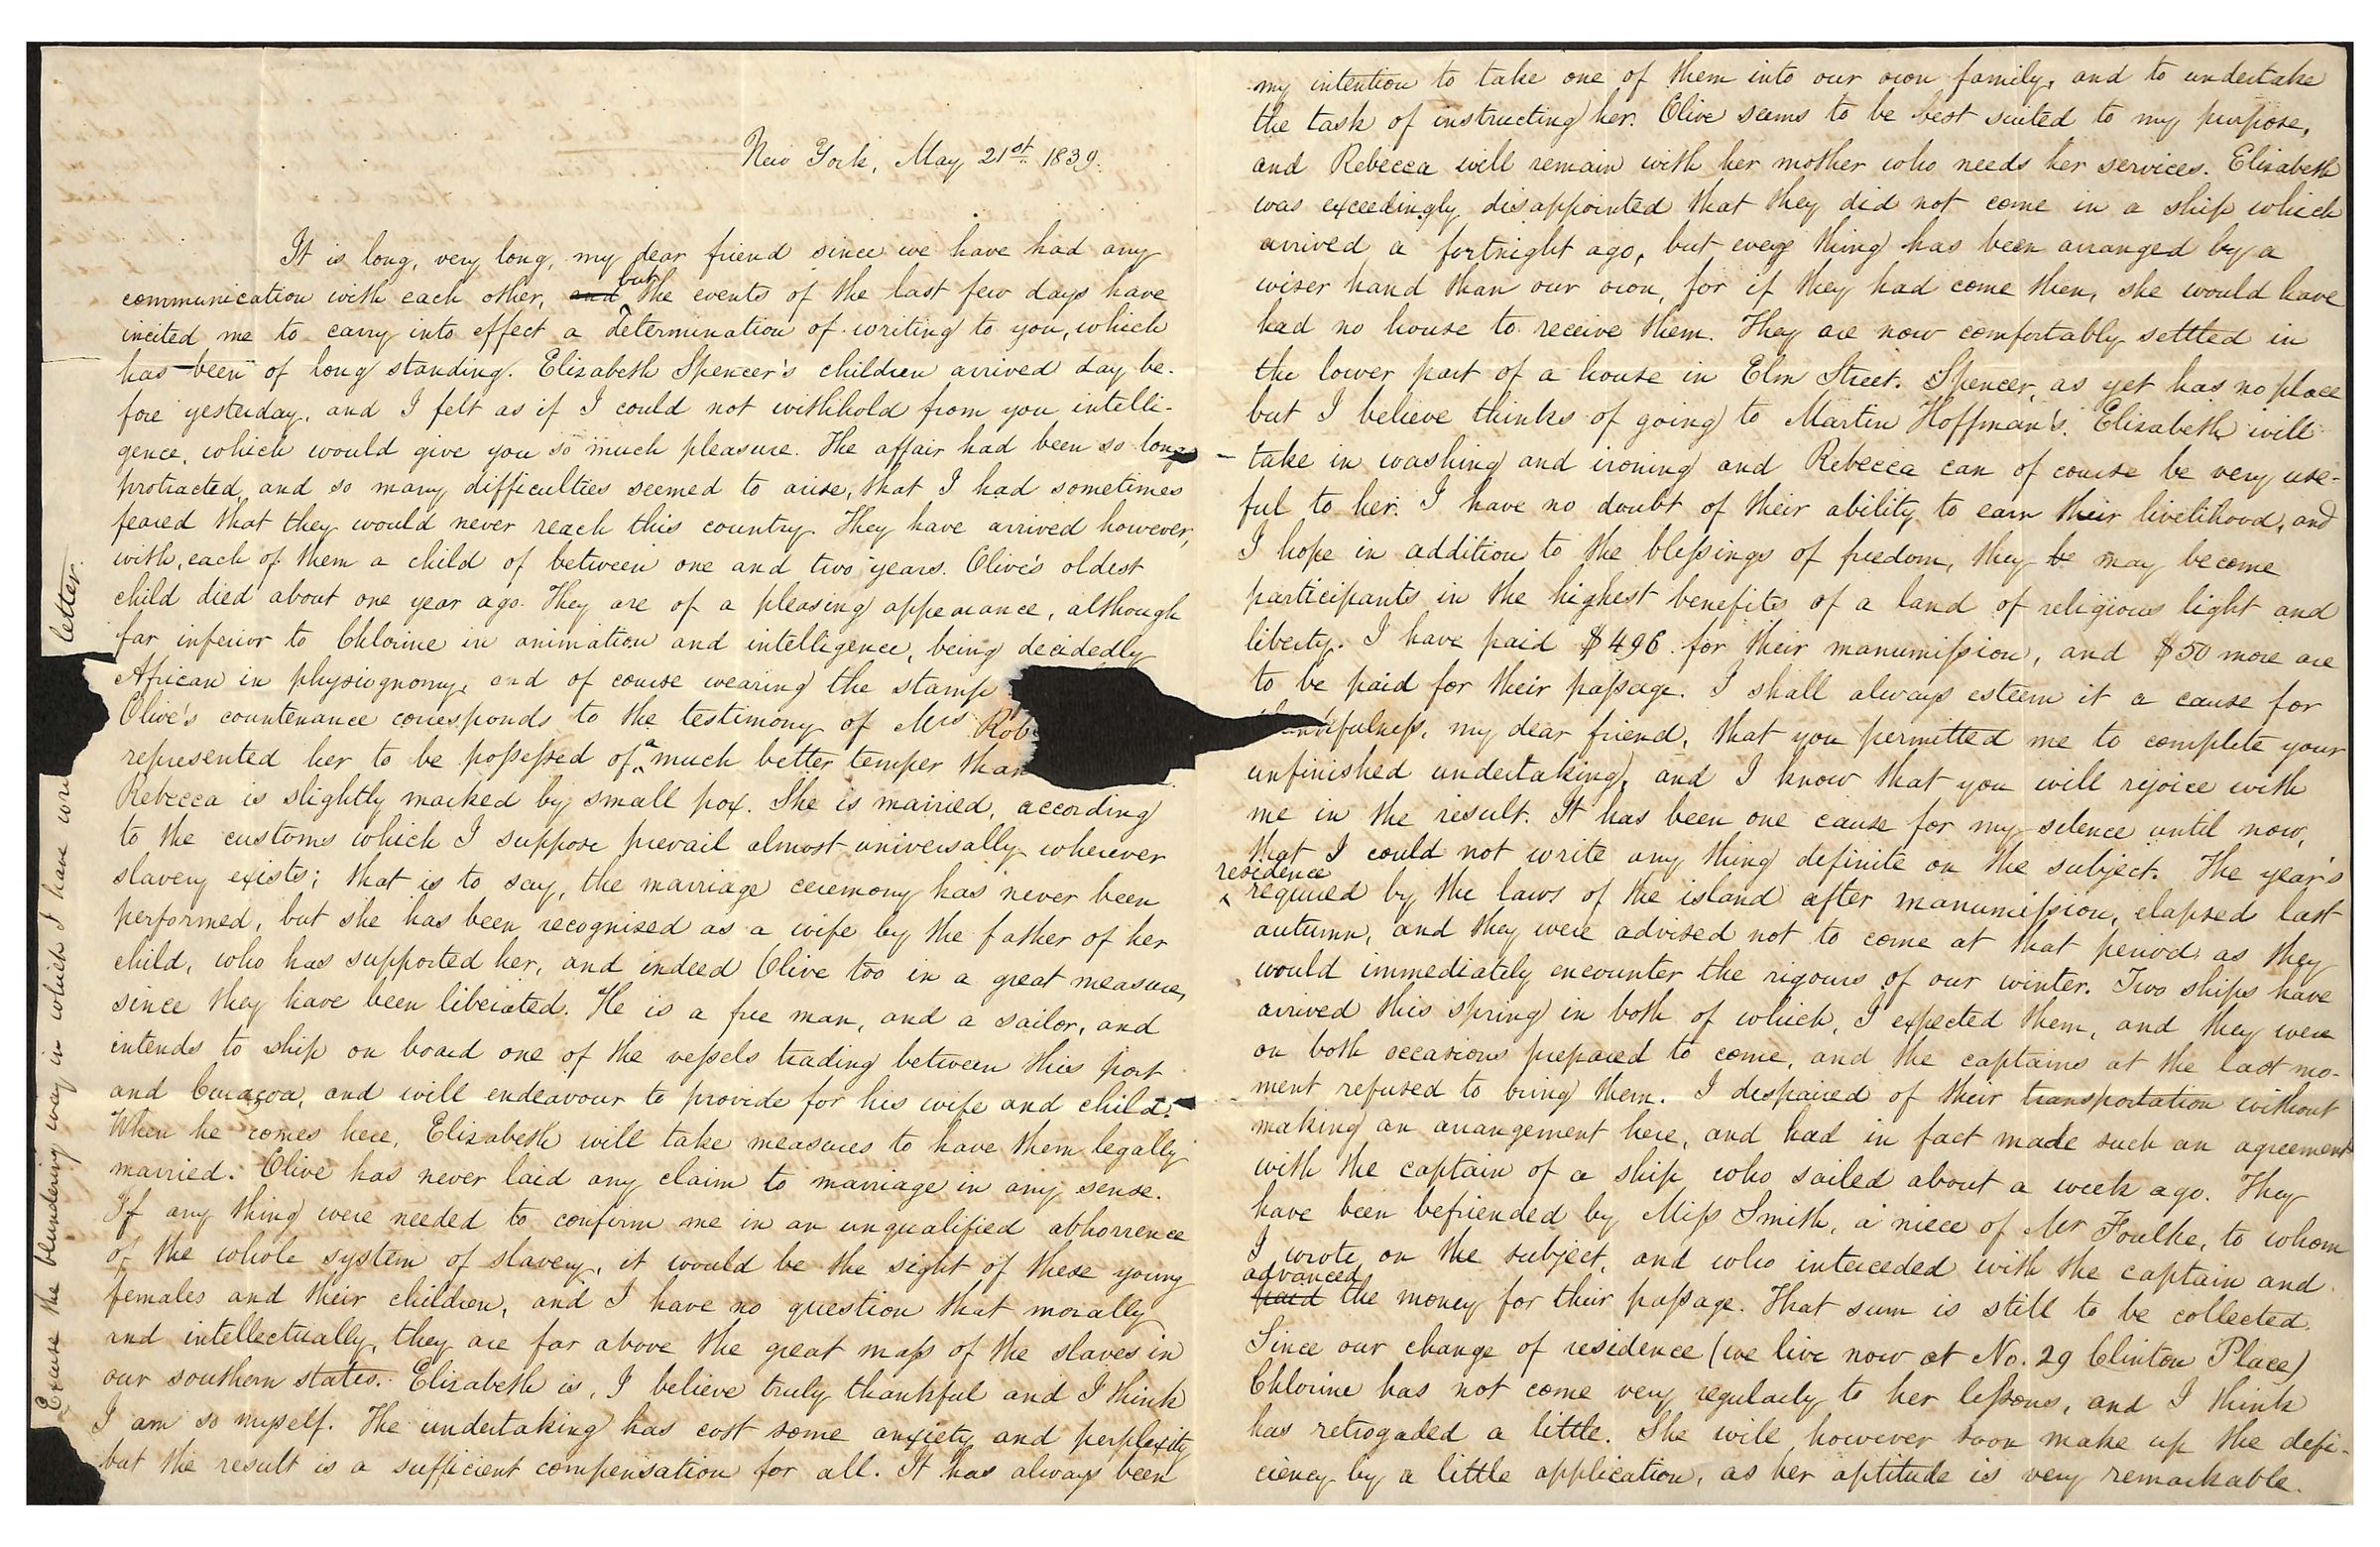 New York, May 21st 1839.
It is long, very long, my dear friend since we have had any
communication with each other, and but the events of the last few days have
incited me to carry into effect a determination of writing to you, which
has been of long standing. Elizabeth Spencer's children arrived day be-
fore yesterday, and I felt as if I could not withhold from you intelli-
gence, which would give you so much pleasure. The affair had been so long
protracted, and so many difficulties seemed to arise, that I had sometimes
feared that they would never reach this country. They have arrived however,
with, each of them a child of between one and two years. Olive's oldest
child died about one year ago. They are of a pleasing appearance, although
far inferior to Chlorine in animation and intelligence, being decidedly
African in physiognomy, and of course wearing the stamp
Olive's countenance corresponds to the testimony of Mrs Rob
represented her to be possessed of a much better temper than
Rebecca is slightly marked by small pox. She is married, according
to the customs which I suppose prevail almost universally wherever
slavery exists; that is to say, the marriage ceremony has never been
performed, but she has been recognized as a wife by the father of her
child, who has supported her, and indeed Olive too in a great measure,
since they have been liberated. He is a free man, and a sailor, and
intends to ship on board one of the vessels trading between this port
and Curaçoa, and will endeavour to provide for his wife and child.
When he comes here, Elizabeth will take measures to have them legally
married. Olive has never laid any claim to marriage in any sense.
If any thing were needed to confirm me in an unqualified abhorrence
of the whole system of slavery, it would be the sight of these young
females and their children, and I have no question that morally
and intellectually, they are far above the great mass of the slaves in
our southern states. Elizabeth is, I believe truly thankful and I think
I am so myself. The undertaking has cost some anxiety and perplexity
but the result is a sufficient compensation for all. It has always been
Excuse the blundering way in which I have letter.
my intention to take one of them into our own family, and to undertake
the task of instructing her. Olive seems to be best suited to my purpose,
and Rebecca will remain with her mother who needs her services. Elizabeth
was exceedingly disappointed that they did not come in a ship which
arrived a fortnight ago, but every thing has been arranged by a
wiser hand than our own, for if they had come then, she would have
had no house to receive them. They are now comfortably settled in
the lower part of a house in Elm Street. Spencer, as yet has no place
but I believe thinks of going to Martin Hoffman's. Elizabeth will
take in washing and ironing and Rebecca can of course be very use-
ful to her. I have no doubt of their ability to earn their livelihood, and
I hope in addition to the blessings of freedom, they be may become
participants in the highest benefits of a land of religious light and
liberty. I have paid $496 for their manumission, and $50 more are
to be paid for their passage. I shall always esteem it a cause for
thankfulness, my dear friend, that you permitted me to complete your
unfinished undertaking, and I know that you will rejoice with
me in the result. It has been one cause for my silence until now,
that I could not write any thing definite on the subject. The year's
residence required by the laws of the island after manumission, elapsed last
autumn, and they were advised not to come at that period, as they
would immediately encounter the rigours of our winter. Two ships have
arrived this spring in both of which, I expected them, and they were
on both occasions prepared to come, and the captains at the last mo-
ment refused to bring them. I despaired of their transportation without
making an arrangement here, and had in fact made such an agreement
with the captain of a ship who sailed about a week ago. They
have been befriended by Miss Smith, a niece of Mr Foulke, to whom
I wrote on the subject, and who interceded with the captain and
paid advanced the money for their passage. That sum is still to be collected.
Since our change of residence (we live now at No. 29 Clinton Place)
Chlorine has not come very regularly to her lessons, and I think
has retrogaded a little. She will however soon make up the defi-
ciency by a little application, as her aptitude is very remarkable.